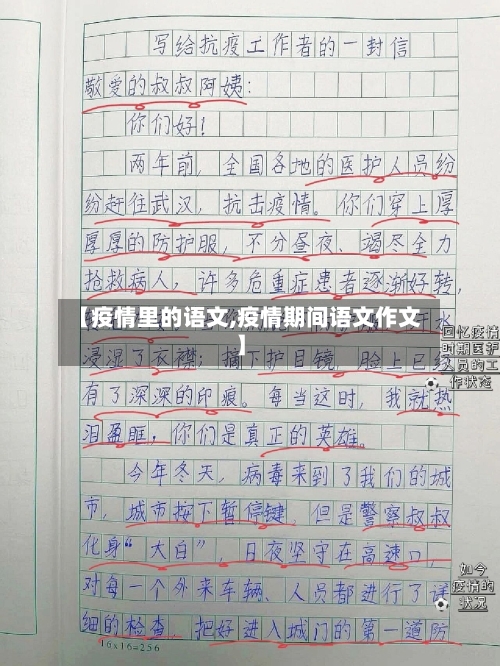 写给抗疫工作者的一封信
敬爱的叔叔阿姨：
你们好！
两年前，全国各地的医护人员纷
纷赶往武汉，抗击疫情。你们穿上厚
厚的防护服，不分昼夜、竭尽全力
抢救病人，许多危重症患者逐渐好转，
【疫情里的语文,疫情期间语文作文
】
汗水
浸湿了衣襟；摘下护目镜，脸上已经
有了深深的印痕。每当这时，我就热
泪盈眶，你们是真正的英雄。
回忆疫情
时期医护
人员的工
作状态
今年冬天，病毒来到了我们的城
市，城市按下暂停键，但是警察叔叔
化身“大白”，日夜坚守在高速口，
对每一个外来车辆、人员都进行了详
细的检查，把好进入城门的第一道防
如今
疫情的
状况
16x16=256